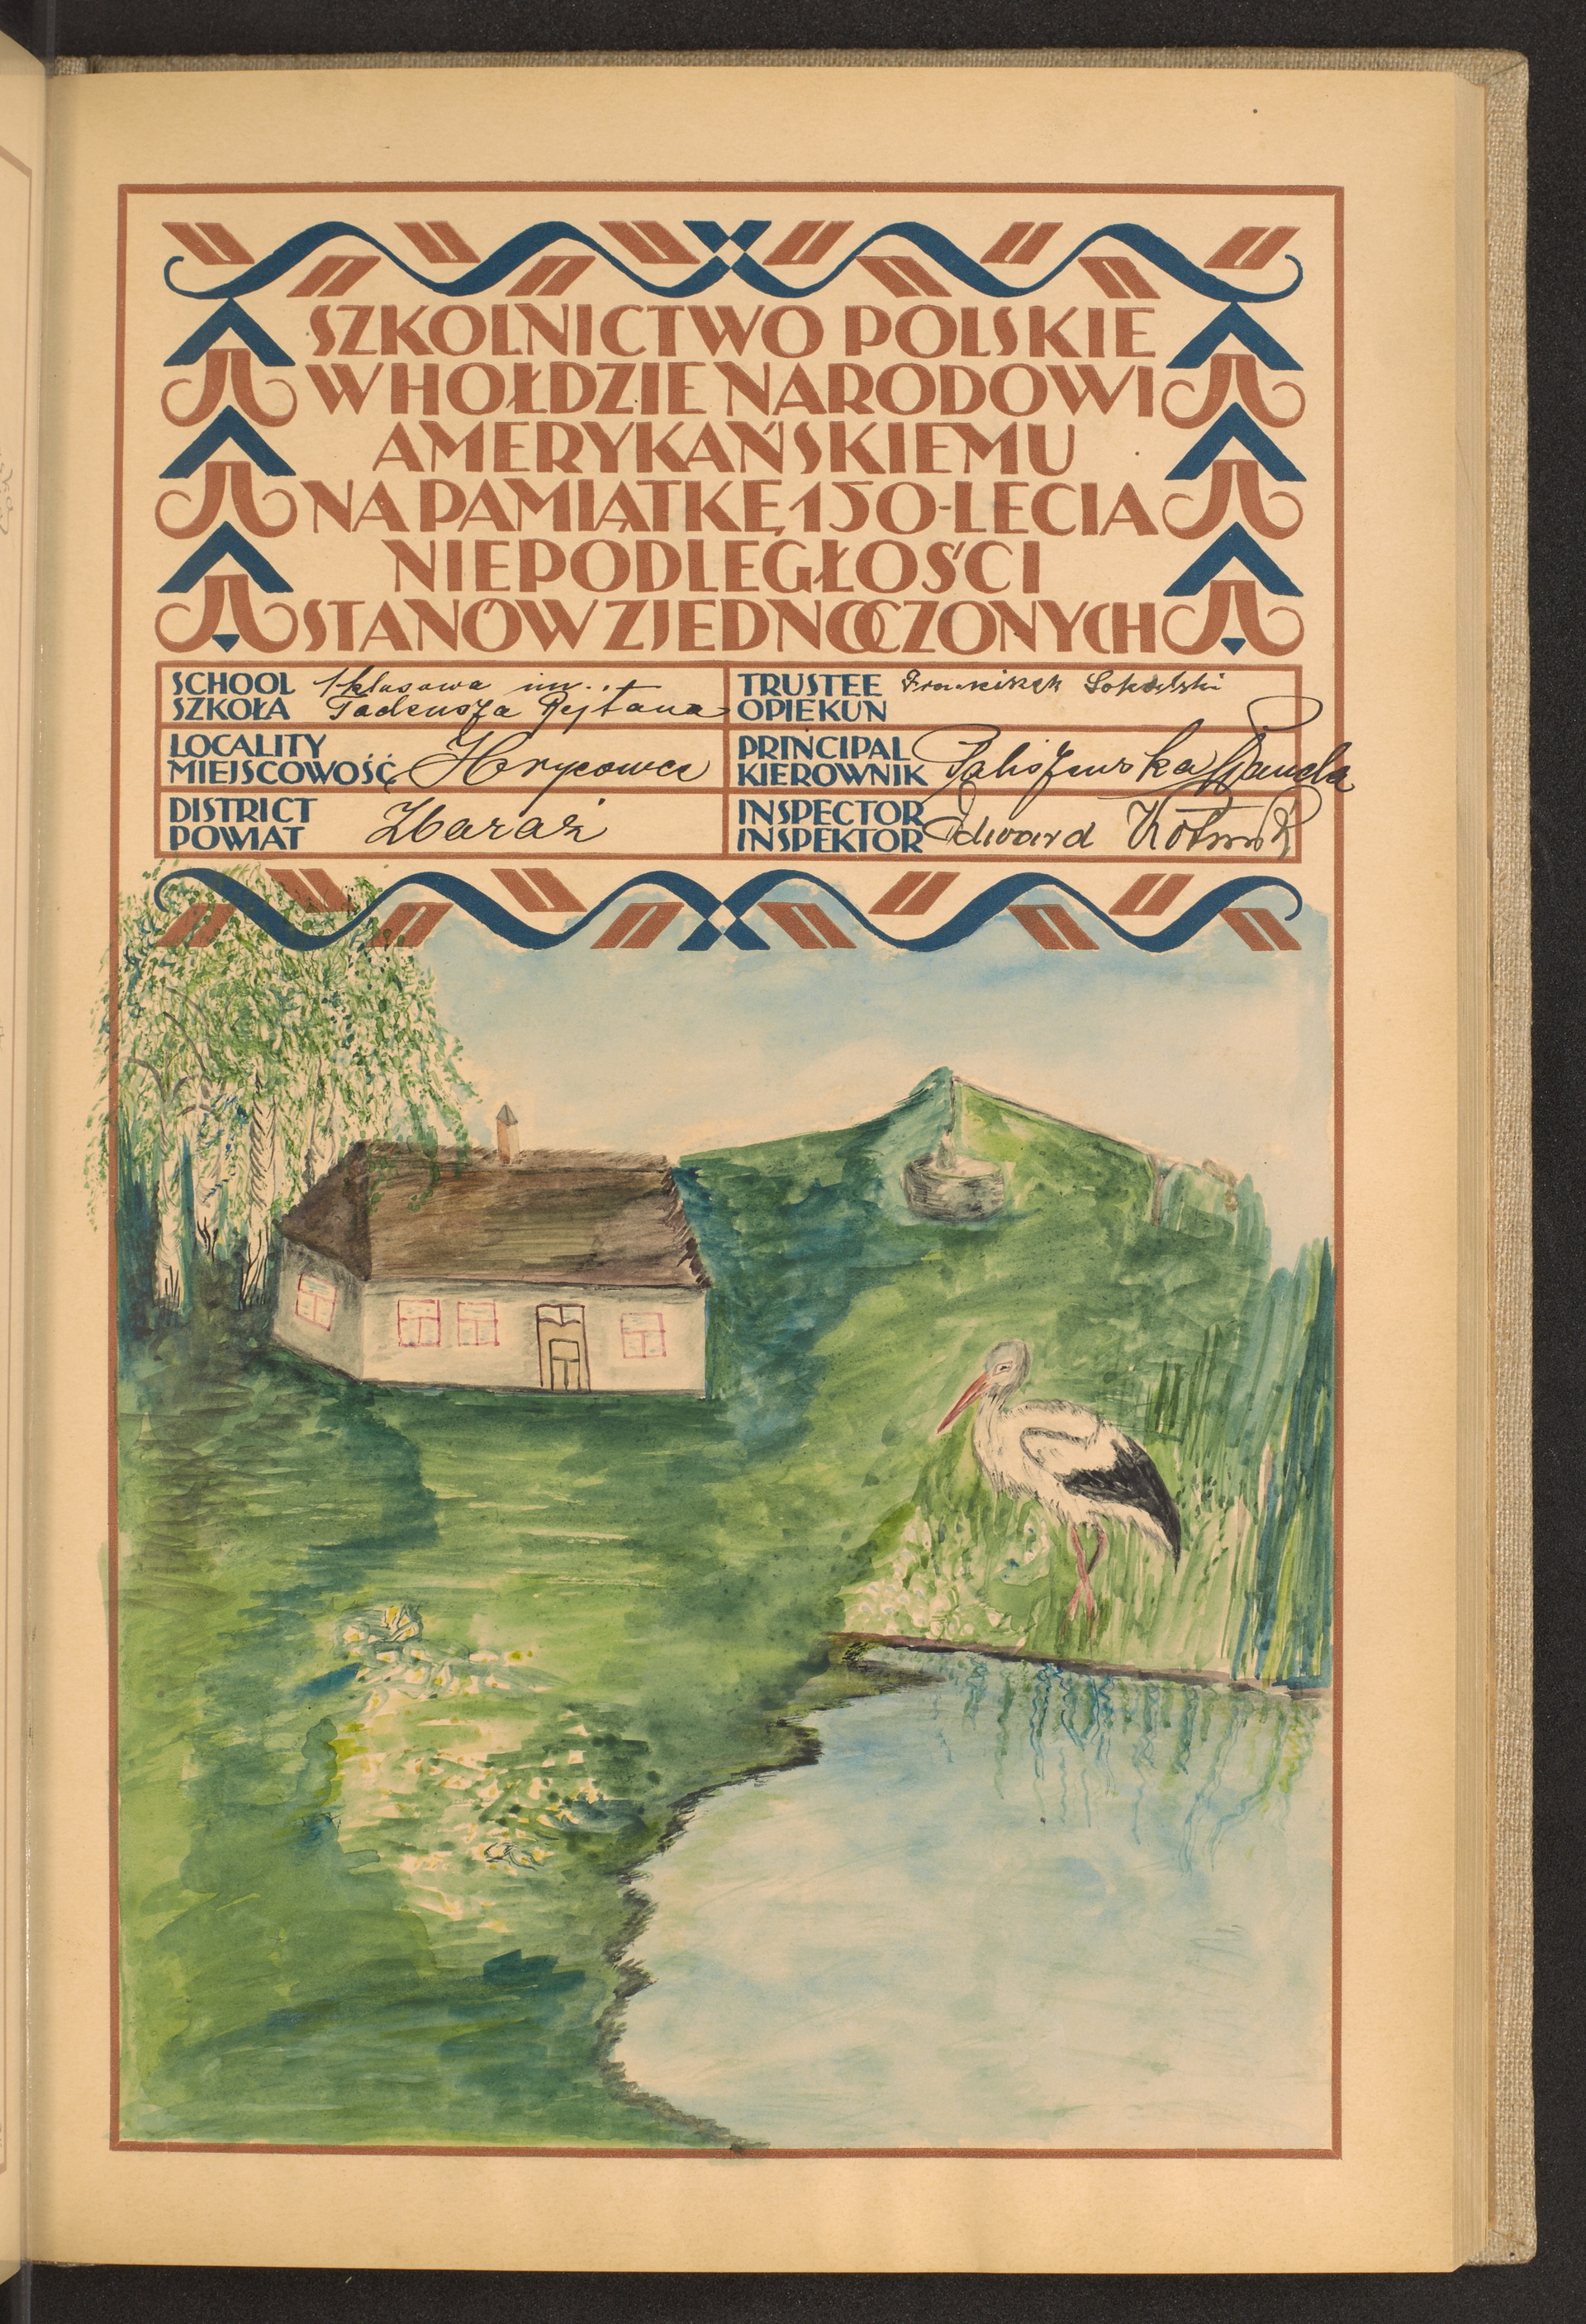 SZKOLNICTWO POLSKIE
W HOŁDZIE NARODOWI
AMERYKAŃSKIEMU
NA PAMIĄTKĘ 150-LECIA
NIEPODLEGŁOŚCI
STANÓW ZJEDNOCZONYCH
SCHOOL 1 klasowa im.
SZKOŁA Tadeusza Rejtana
LOCALITY
MIEJSCOWOŚĆ Hrycowce
DISTRICT
POWIAT Zbaraż
TRUSTEE Franciszek Sokulski
OPIEKUN
PRINCIPAL
KIEROWNIK Paliszewska Wanda
INSPECTOR
INSPEKTOR Edward